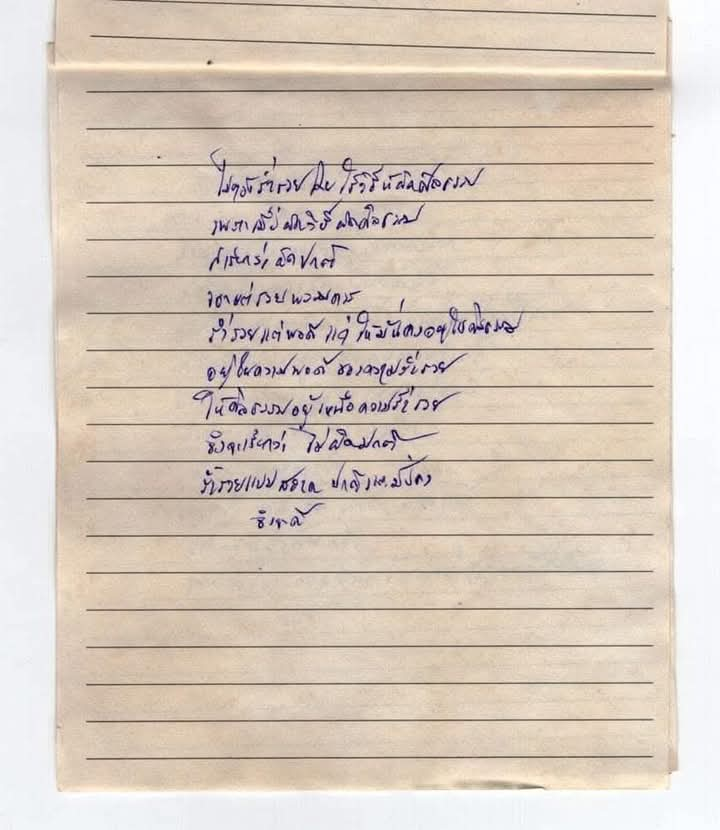 ไม่ควรร่ำรวย โดย ใช้วิธีที่ผิดศีลธรรม
เพราะเมื่อผิดวิธี ผิดศีลธรรม
ก็เรียกว่า ผิดปกติ
รวย
ร่ำรวย แต่พอดี แต่ ให้มั่นคงอยู่ในศีลธรรม
อยู่ในความพอดี ของความร่ำรวย
ให้ศีลธรรมอยู่เหนือความร่ำรวย
จึงจะเรียกว่า ไม่ผิดปกติ
ร่ำรวยแบบสะอาด ปกติ
จึงจะดี